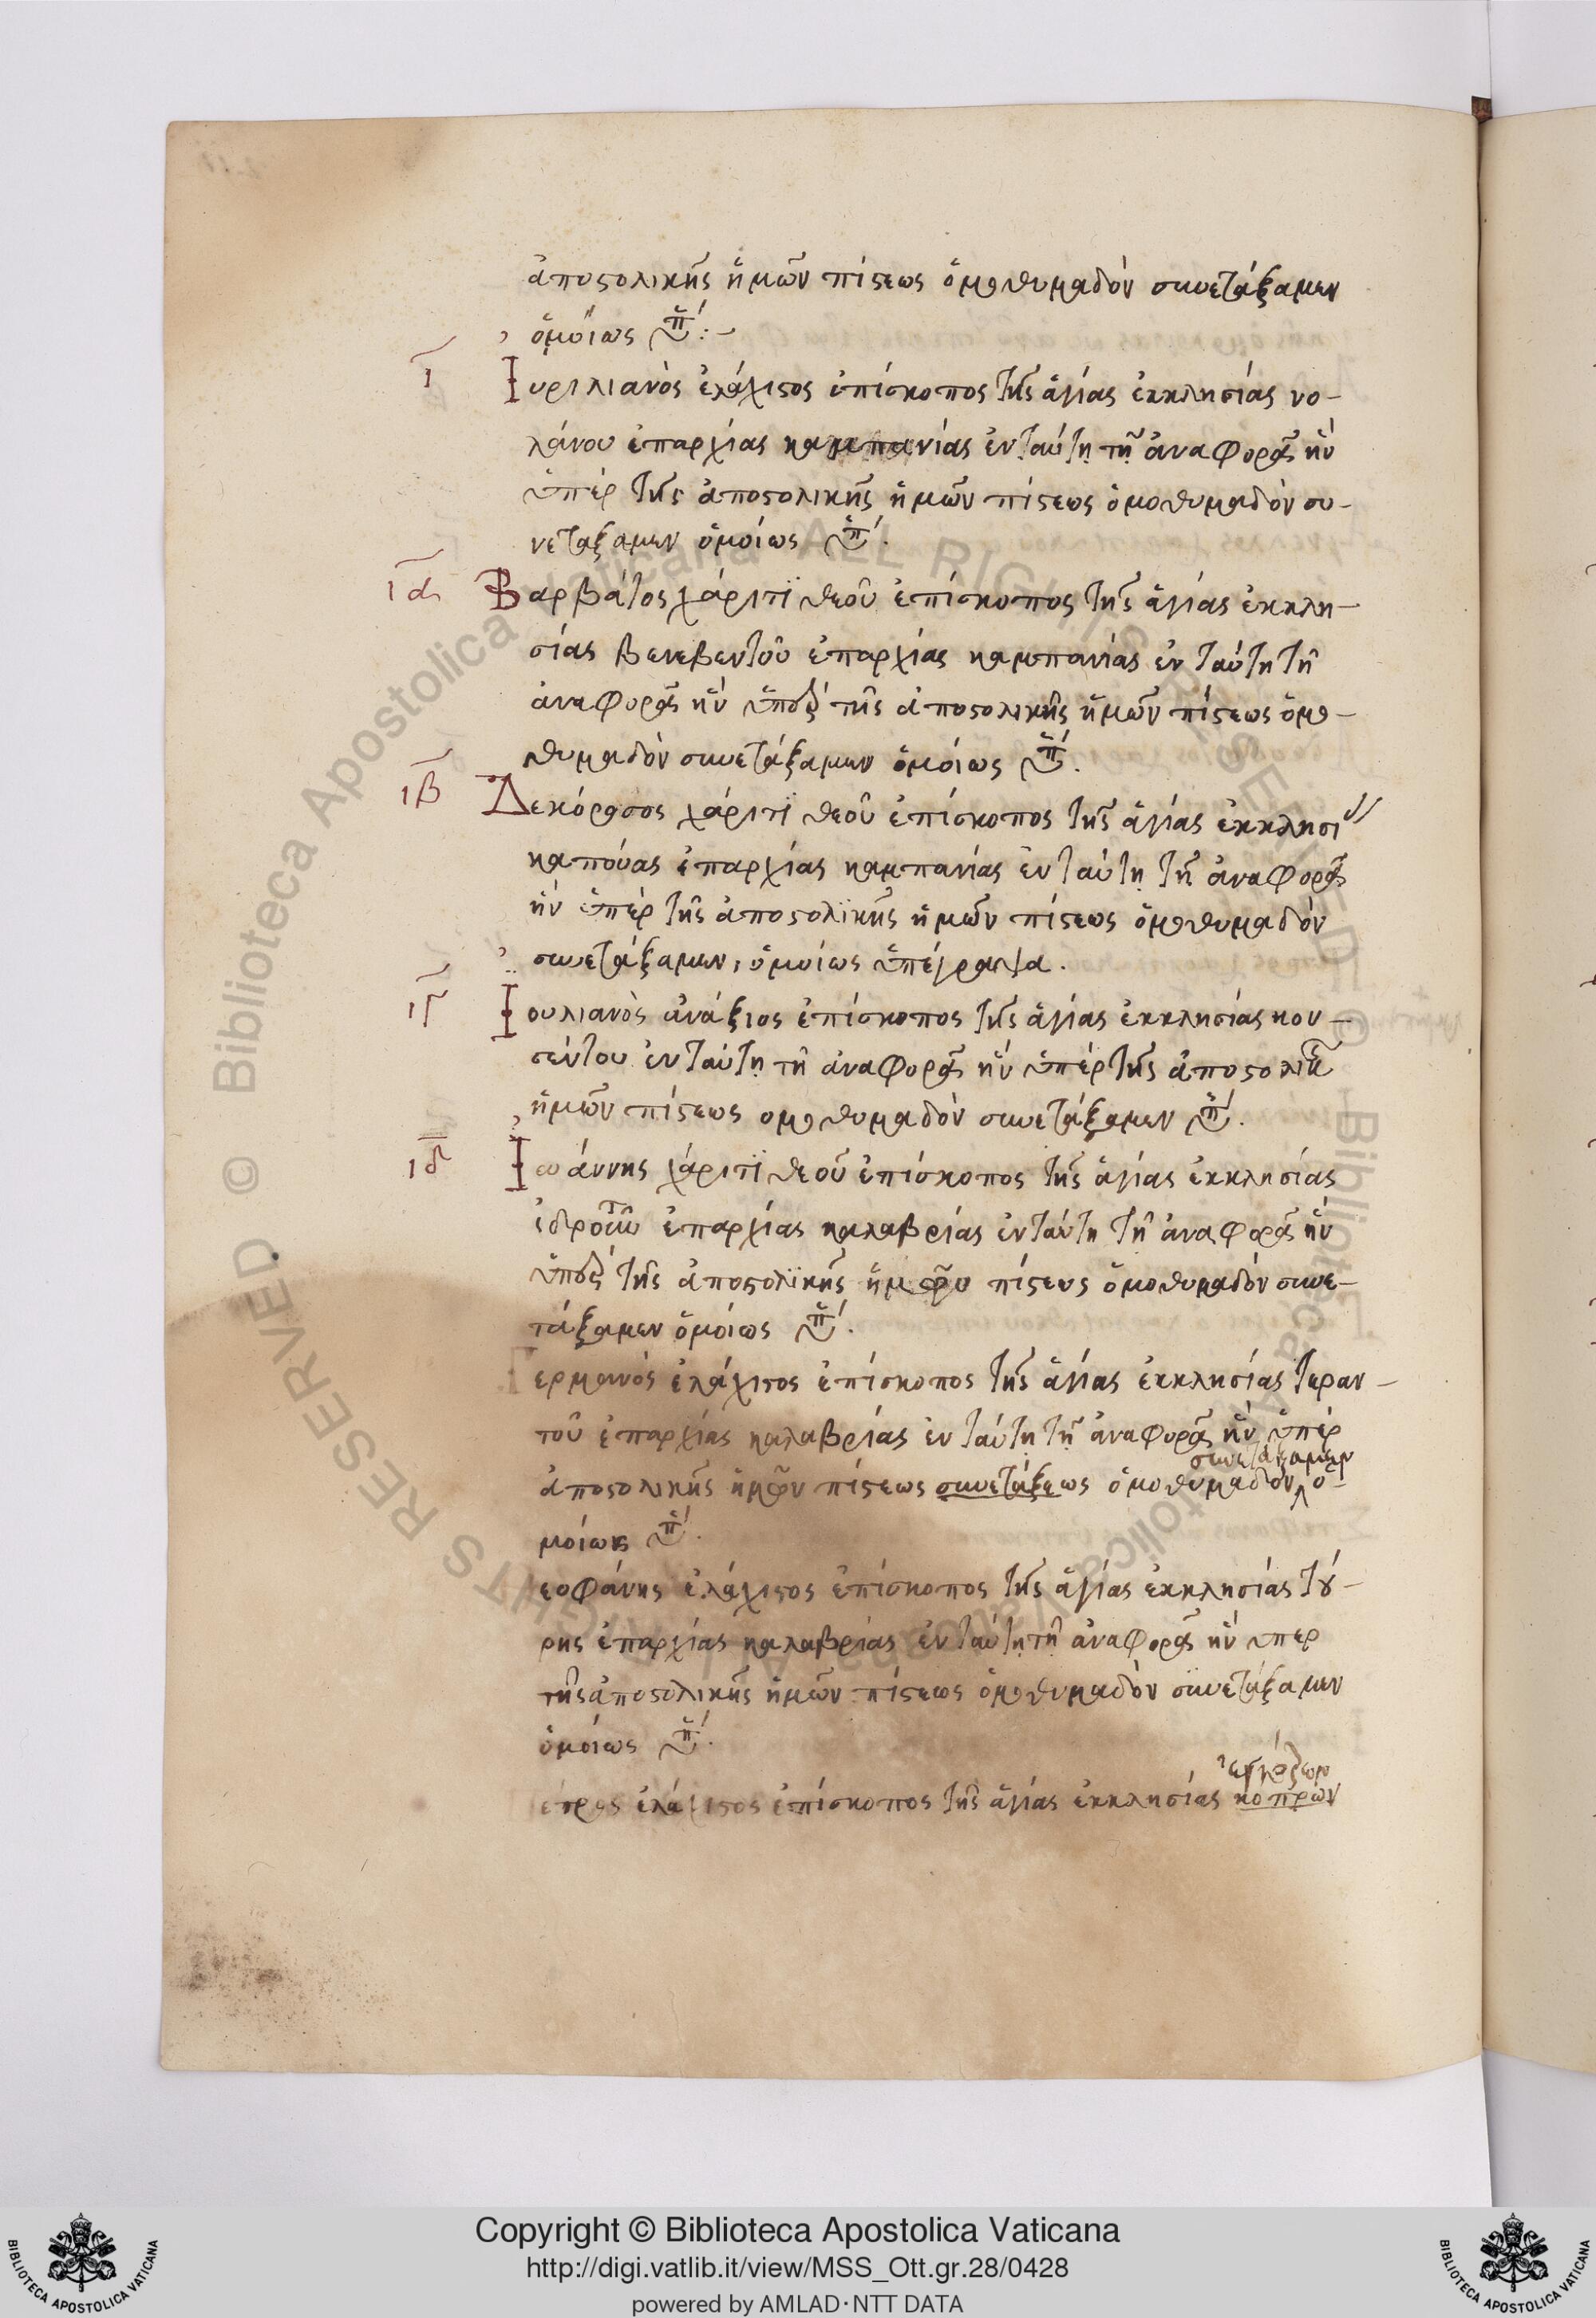 ἀποστολικῆς ἡμῶν πίστεως ὁμοθυμαδὸν συνετάξαμεν
ὁμοίως ὑπ́ :-
ῑ Ιυριλιανὸς ἐλάχιστος ἐπίσκοπος τῆς ἁγίας ἐκκλησίας νο-
λάνου ἐπαρχίας καμπανίας ἐν ταύτῃ τῇ ἀναφορᾷ ἣν
ὑπὲρ τῆς ἀποστολικῆς ἡμῶν πίστεως ὁμοθυμαδὸν συ-
νεταξαμεν ὁμοίως ὑπ́.
ια Βαρβάτος χάριτϊ θεοῦ ἐπίσκοπος τῆς ἁγίας ἐκκλη-
σίας βενεβεντοῦ ἐπαρχίας καμπανίας ἐν ταύτη τῆ
ἀναφορᾷ ἣν ὑπὲρ τῆς ἀποστολικῆς ἡμῶν πίστεως ὁμο-
θυμαδὸν συνετάξαμεν ὁμοίως ὑπ́.
ιβ Δεκόρασος χάριτϊ θεοῦ ἐπίσκοπος τῆς ἁγίας ἐκκλησι
καπούας ἐπαρχίας καμπανίας ἐν ταύτῃ τῇ ἀναφορᾷ
ἣν ὑπὲρ τῆς ἀποστολϊκῆς ἡμῶν πίστεως ὁμοθυμαδὸν
συνετάξαμεν, ὁμοίως ὑπέγραψα.
ιγ Ιουλιανὸς ἀνάξιος ἐπίσκοπος τῆς ἁγίας ἐκκλησίας κον-
σέντου ἐν ταύτῃ τῆ ἀναφορᾷ ἣν ὑπὲρ τῆς ἀποστολικ
ἡμῶν πίστεως ομοθυμαδὸν συνετάξαμεν ὑπ́.
ιδ Ιωάννης χάριτϊ θεοῦ ἐπίσκοπος τῆς ἁγίας ἐκκλησίας
ἐπαρχίας καλαβρίας ἐν ταύτη τῆ ἀναφορᾷ ἣν
ὑπὲρ τῆς ἀποστολϊκῆς ἡμῶν πίστεως ὁμοθυμαδὸν συνε-
τάξαμεν ὁμοίως ὑπ́.
Γερμανὸς ἐλάχιστος ἐπίσκοπος τῆς ἁγίας ἐκκλησίας ταραν-
τοῦ ἐπαρχίας καλαβρίας ἐν ταύτῃ τῇ ἀναφορᾷ ἣν ὑπὲρ
συνετάξαμεν
ἀποστολικῆς ἡμῶν πίστεως συνετάξεως ὁμοθυμαδὸν ὁ-
μοίως ὑπ́.
εοφάνης ἐλάχιστος ἐπίσκοπος τῆς ἁγίας ἐκκλησίας τού-
ρης ἐπαρχίας καλαβρίας ἐν ταύτῃ τῆ ἀναφορᾷ ἣν ὑπερ
τῆς ἀποστολικῆς ἡμῶν πίστεως ὁμοθυμαδὸν συνετάξαμεν
ὁμοίως ὑπ́.
έτρος ἐλάχιστος ἐπίσκοπος τῆς ἁγίας ἐκκλησίας κοπρών
© Biblioteca Apostolica Vaticana ALL RIGHTS RESERVED © Biblioteca Apostolica Vaticana ALL RIGHTS RESERVED
Copyright © Biblioteca Apostolica Vaticana
http://digi.vatlib.it/view/MSS_Ott.gr.28/0428
powered by AMLAD·NTT DATA
BIBLIOTECA APOSTOLICA VATICANA
BIBLIOTECA APOSTOLICA VATICANA